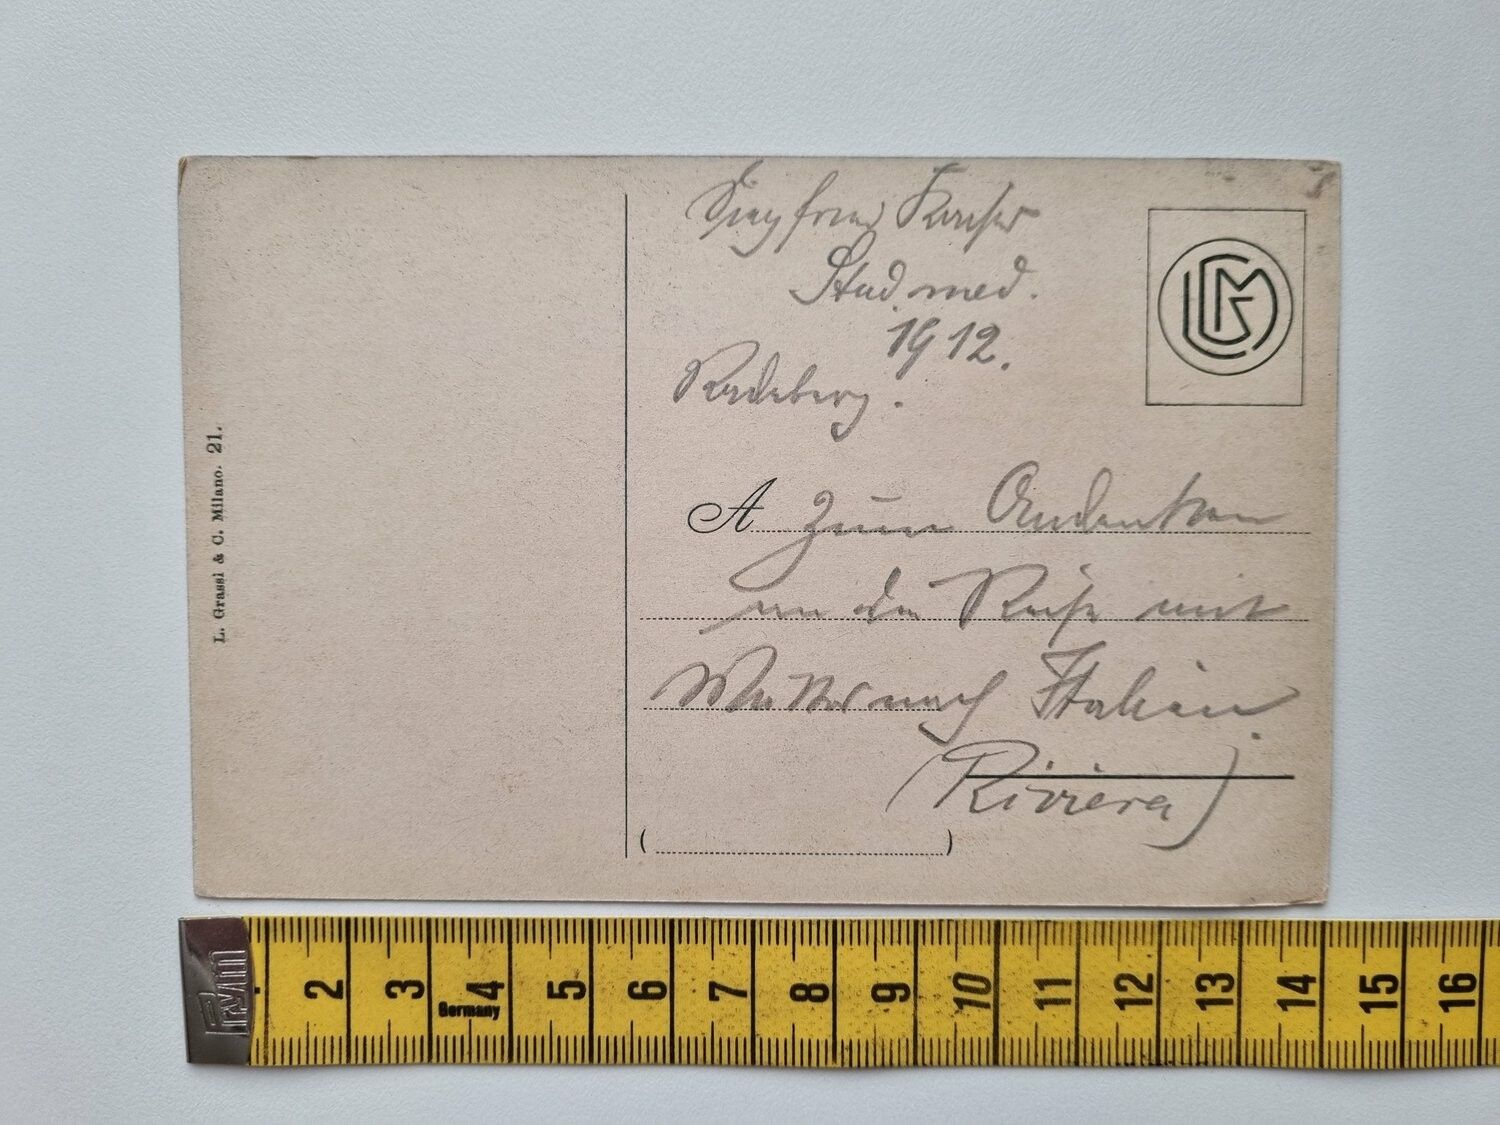 Siegfried
Stud. med.
1912.
Radeberg.
A zum Andenken
an die Reise mit
Mutter nach Italien.
(Riviera)
L. Grassi & C. Milano. 21.
Germany
2 3 4 5 6 7 8 9 10 11 12 13 14 15 16